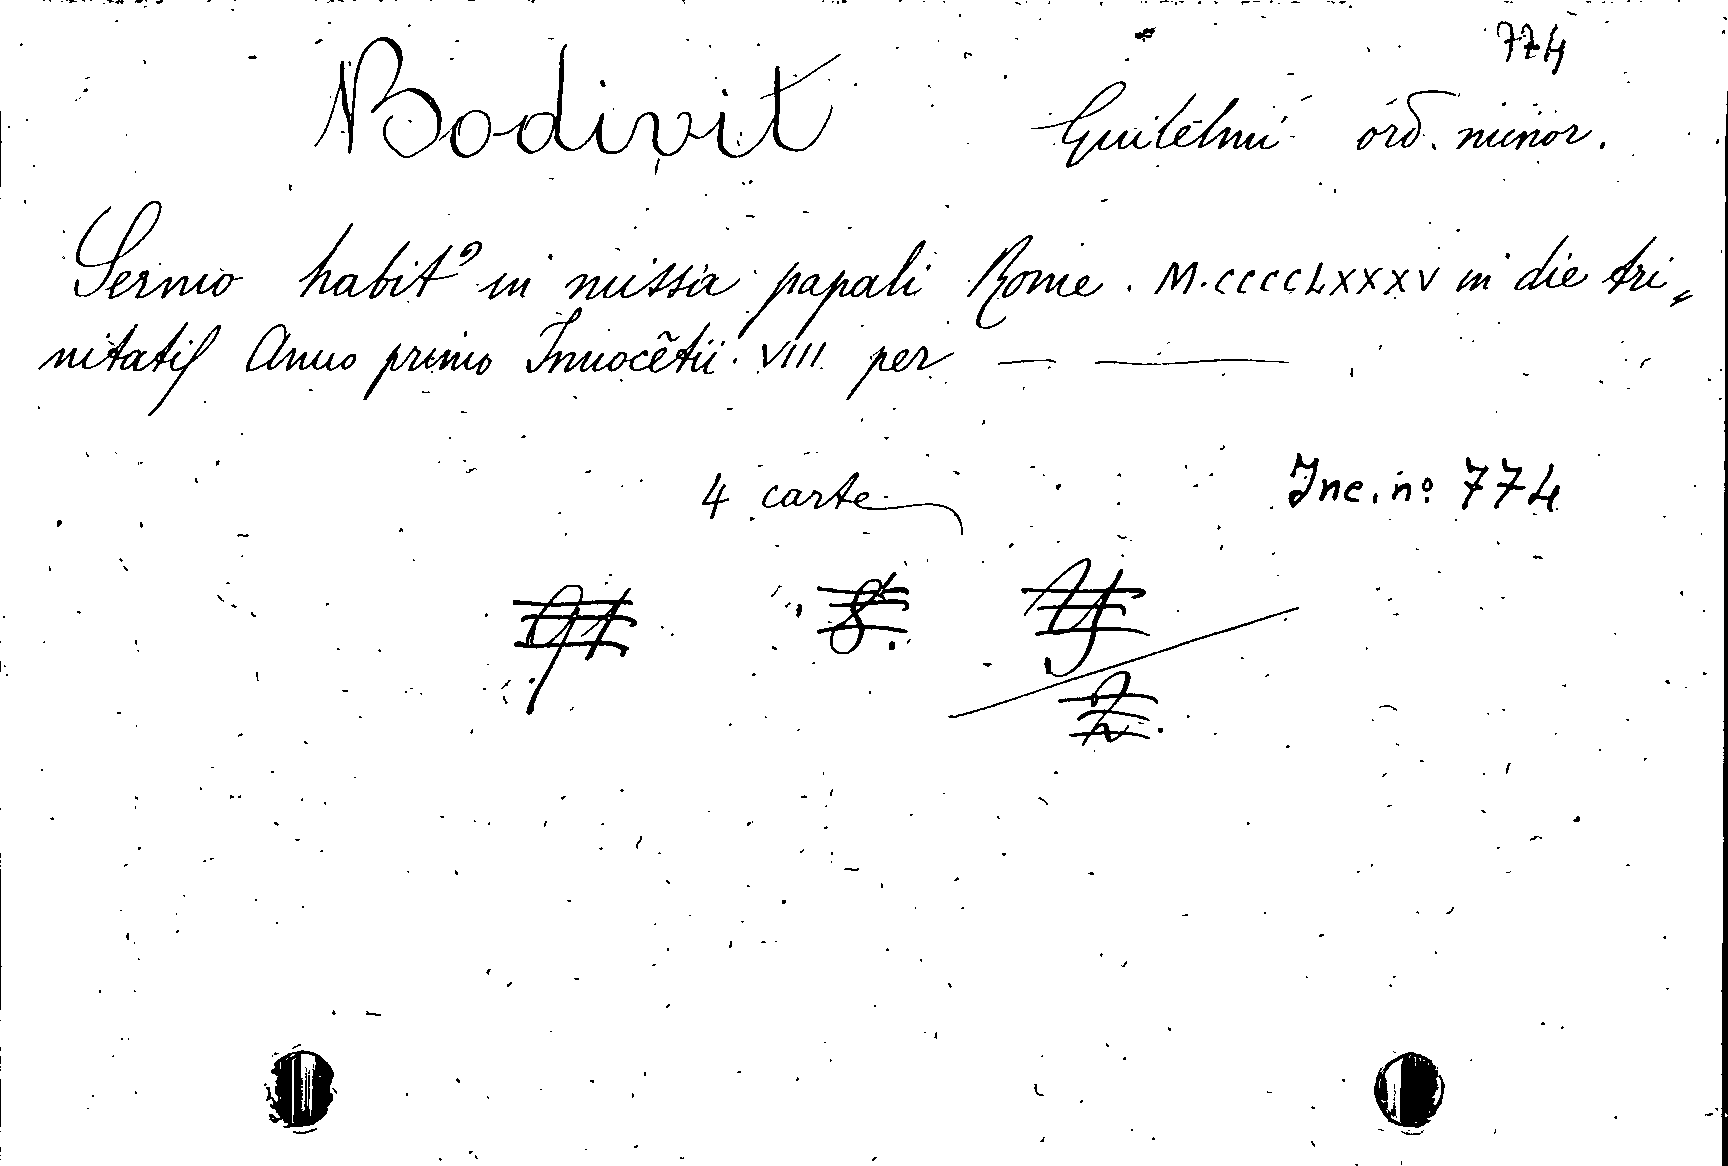 774
Bodivit Guilelmū ord. minor.
Sermo habitꝰ in missa papali Rome. M.CCCCLXXXV in die tri„
nitatiſ Anno primo Innocẽtii. VIII per — —
4 carte
Inc. nº 774